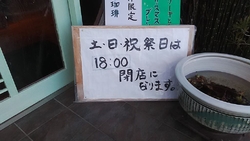 珈琲
限定
土・日・祝祭日は
18:00
閉店に
なります。